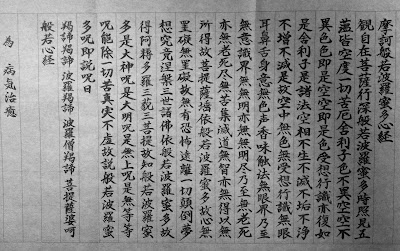 摩訶般若波羅蜜多心経
観自在菩薩行深般若波羅蜜多時照見五
蘊皆空度一切苦厄舎利子色不異空空不
異色色即是空空即是色受想行識亦復如
是舎利子是諸法空相不生不滅不垢不浄
不増不減是故空中無色無受想行識無眼
耳鼻舌身意無色声香味触法無眼界乃至
無意識界無無明亦無無明尽乃至無老死
亦無老死尽無苦集滅道無智亦無得以無
所得故菩提薩埵依般若波羅蜜多故心無
罣礙無罣礙故無有恐怖遠離一切顛倒夢
想究竟涅槃三世諸佛依般若波羅蜜多故
得阿耨多羅三藐三菩提故知般若波羅蜜
多是大神呪是大明呪是無上呪是無等等
呪能除一切苦真実不虚故説般若波羅蜜
多呪即説呪曰
羯諦羯諦 波羅羯諦 波羅僧羯諦 菩提薩婆呵
般若心経
為 病気治癒